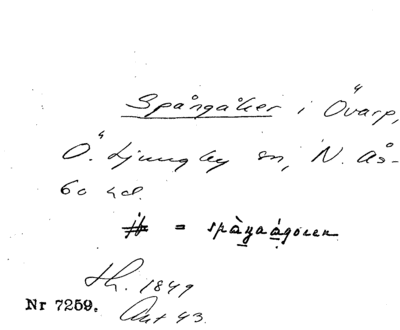 Spångåker i Övarp,
Ö. Ljungby sn, N. Ås-
bo hd.
jb = spåŋaágoren
Lh. 1849
Nr 7259. Ant 43.